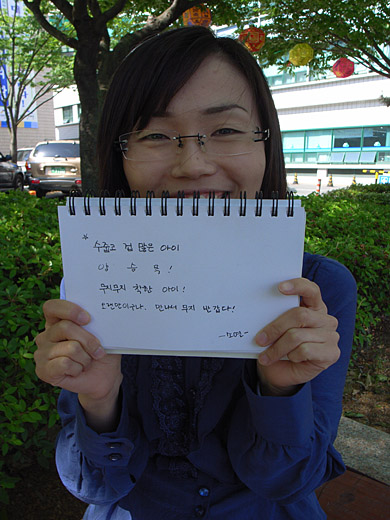 * 수줍고 겁 많은 아이
양 승 묵!
무지무지 착한 아이!
오랜만이구나. 만나서 무지 반갑다!